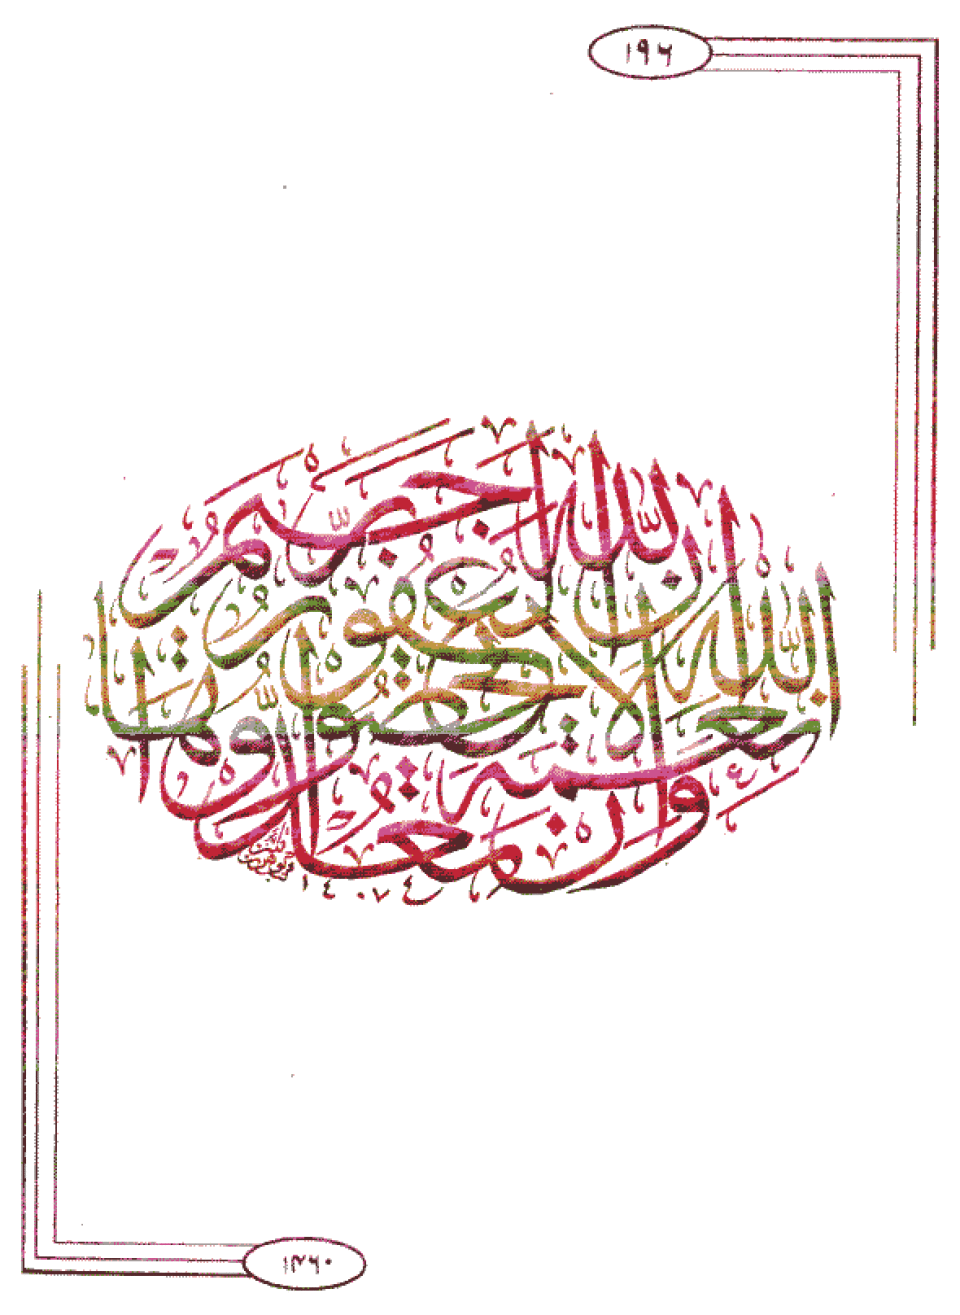 ١٩٦
وَإِن تَعُدُّوا نِعْمَةَ اللَّهِ لَا تُحْصُوهَا إِنَّ اللَّهَ لَغَفُورٌ رَّحِيمٌ
١٤٠٧
١٣٦٠